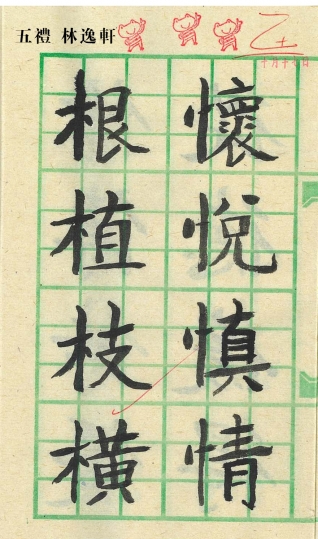 五禮 林逸軒
乙上
十月十七日
懷悅慎情
根植枝橫